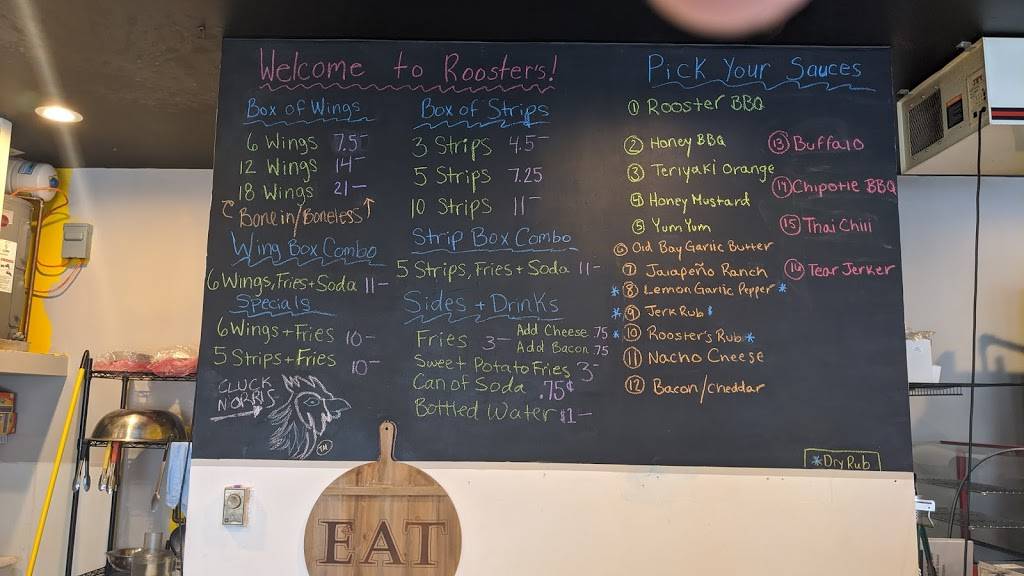 Welcome to Rooster's!
Box of Wings
6 Wings 7.5-
12 Wings 14-
18 Wings 21-
Bone in/Boneless
Wing Box Combo
6 Wings, Fries + Soda 11-
Specials
6 Wings + Fries 10-
5 Strips + Fries 10-
CLUCK
NORRIS
TM
Box of Strips
3 Strips 4.5-
5 Strips 7.25
10 Strips 11-
Strip Box Combo
5 Strips, Fries + Soda 11-
Sides + Drinks
Fries 3-
Add Cheese .75
Add Bacon .75
Sweet Potato Fries 3-
Can of Soda .75¢
Bottled Water $1-
Pick Your Sauces
1 Rooster BBQ
2 Honey BBQ
3 Teriyaki Orange
4 Honey Mustard
5 Yum Yum
6 Old Bay Garlic Butter
7 Jalapeño Ranch
*8 Lemon Garlic Pepper*
*9 Jerk Rub*
*10 Rooster's Rub*
11 Nacho Cheese
12 Bacon/Cheddar
13 Buffalo
14 Chipotle BBQ
15 Thai Chili
16 Tear Jerker
*Dry Rub
EAT